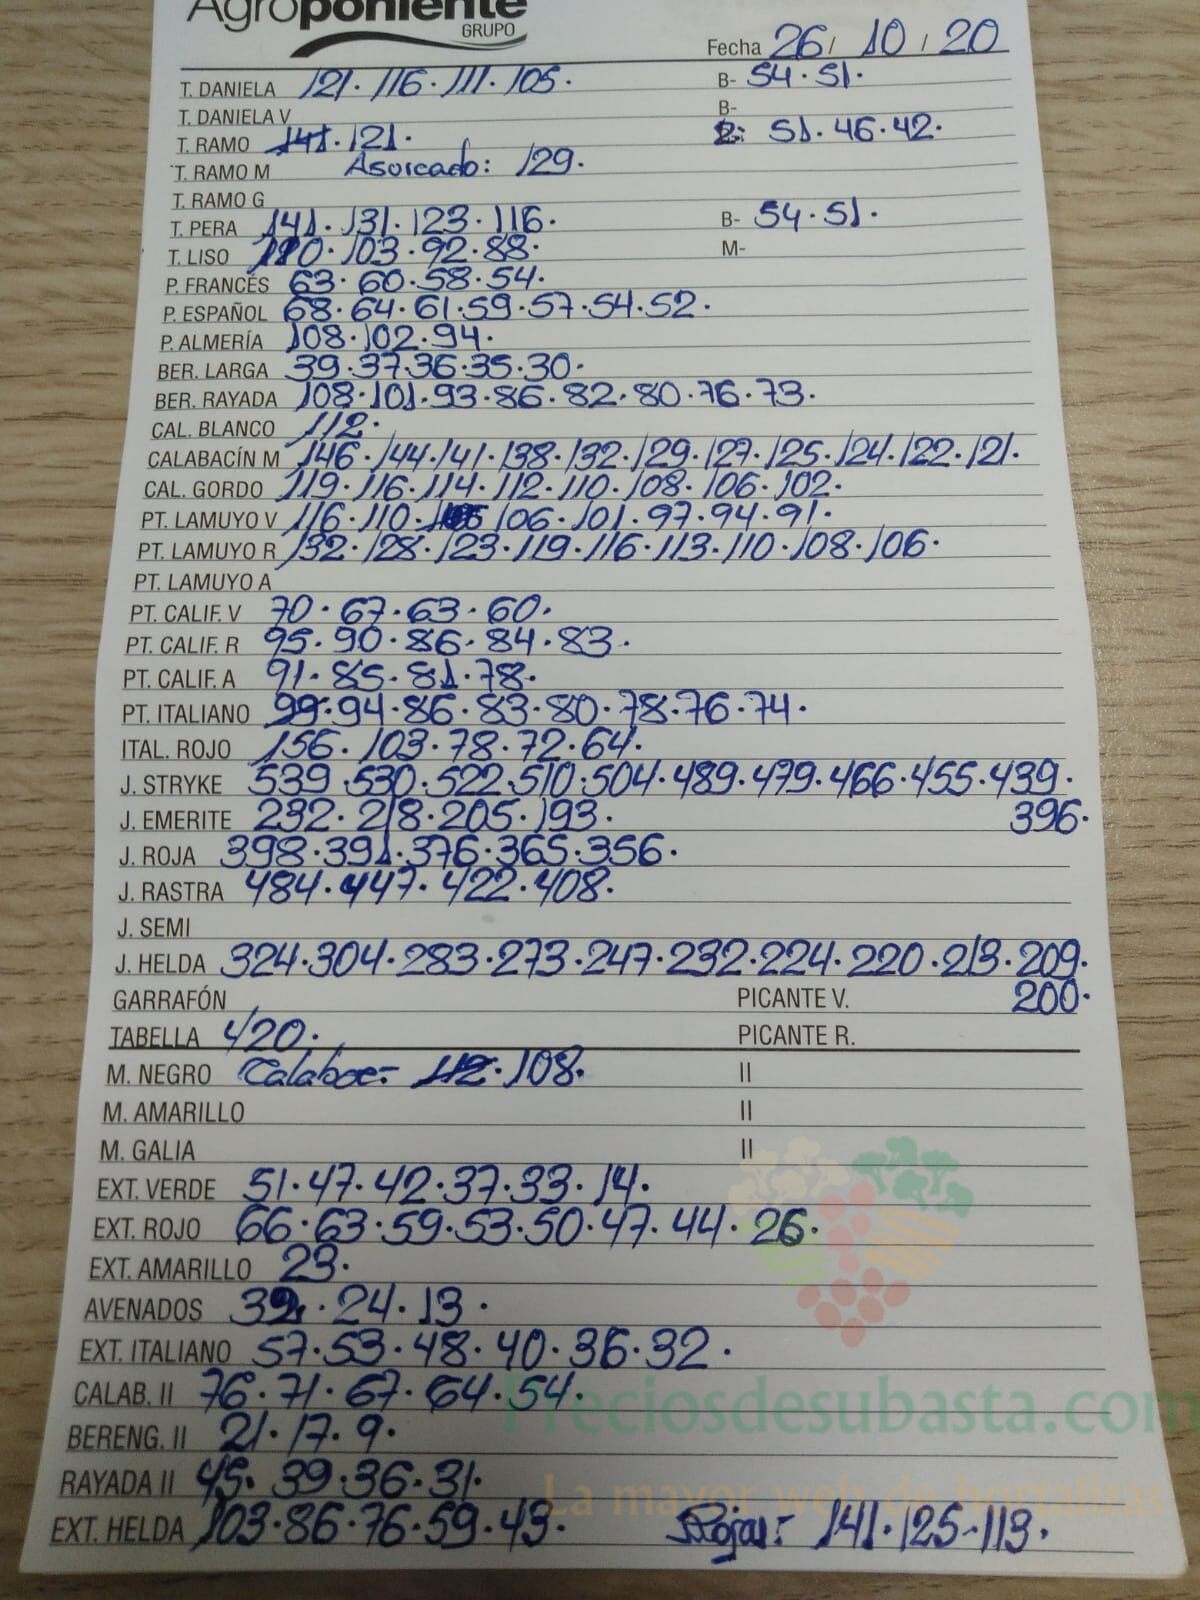 Agroponiente
GRUPO
Fecha 26/ 10 / 20
T. DANIELA 121. 116. 111. 105. B- 54. 51.
T. DANIELA V B-
T. RAMO 141. 121. 2: 51. 46. 42.
T. RAMO M Asurcado: 129.
T. RAMO G
T. PERA 141. 131. 123. 116. B- 54. 51.
T. LISO 110. 103. 92. 88. M-
P. FRANCÉS 63. 60. 58. 54.
P. ESPAÑOL 68. 64. 61. 59. 57. 54. 52.
P. ALMERÍA 108. 102. 94.
BER. LARGA 39. 37. 36. 35. 30.
BER. RAYADA 108. 101. 93. 86. 82. 80. 76. 73.
CAL. BLANCO 112.
CALABACÍN M 146. 144. 141. 138. 132. 129. 127. 125. 124. 122. 121.
CAL. GORDO 119. 116. 114. 112. 110. 108. 106. 102.
PT. LAMUYO V 116. 110. 106. 101. 97. 94. 91.
PT. LAMUYO R 132. 128. 123. 119. 116. 113. 110. 108. 106.
PT. LAMUYO A
PT. CALIF. V 70. 67. 63. 60.
PT. CALIF. R 95. 90. 86. 84. 83.
PT. CALIF. A 91. 85. 81. 78.
PT. ITALIANO 99. 94. 86. 83. 80. 78. 76. 74.
ITAL. ROJO 156. 103. 78. 72. 64.
J. STRYKE 539. 530. 522. 510. 504. 489. 479. 466. 455. 439.
J. EMERITE 232. 218. 205. 193. 396.
J. ROJA 398. 391. 376. 365. 356.
J. RASTRA 484. 447. 422. 408.
J. SEMI
J. HELDA 324. 304. 283. 273. 247. 232. 224. 220. 213. 209.
GARRAFÓN PICANTE V. 200.
TABELLA 420. PICANTE R.
M. NEGRO Calabac- 112. 108. II
M. AMARILLO II
M. GALIA II
EXT. VERDE 51. 47. 42. 37. 33. 14.
EXT. ROJO 66. 63. 59. 53. 50. 47. 44. 26.
EXT. AMARILLO 23.
AVENADOS 24. 13.
EXT. ITALIANO 57. 53. 48. 40. 36. 32.
CALAB. II 76. 71. 67. 64. 54.
Preciosdesubasta.com
BERENG. II 21. 17. 9.
RAYADA II 45. 39. 36. 31.
La mayor web de hortalizas
EXT. HELDA 103. 86. 76. 59. 43. Rojas: 141. 125. 113.